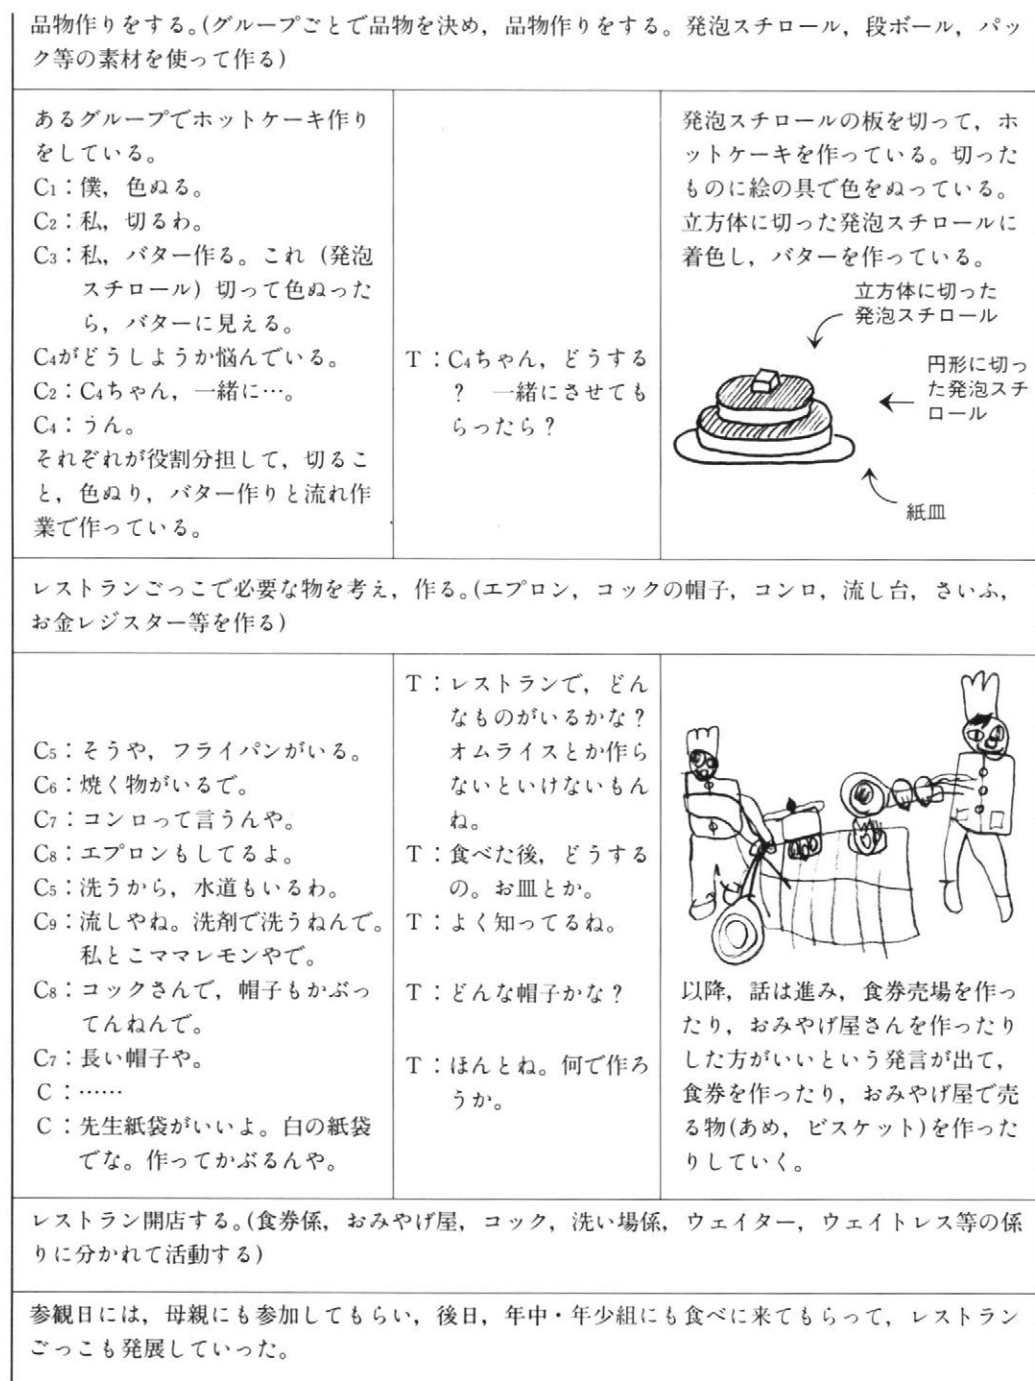 品物作りをする。(グループごとで品物を決め，品物作りをする。発泡スチロール，段ボール，パッ
ク等の素材を使って作る)
あるグループでホットケーキ作り
をしている。
C₁：僕，色ぬる。
C₂：私，切るわ。
C₃：私，バター作る。これ（発泡
スチロール）切って色ぬった
ら，バターに見える。
C₄がどうしようか悩んでいる。
C₂：C₄ちゃん，一緒に…。
C₄：うん。
それぞれが役割分担して，切るこ
と，色ぬり，バター作りと流れ作
業で作っている。
T：C₄ちゃん，どうする
？　一緒にさせても
らったら？
発泡スチロールの板を切って，ホ
ットケーキを作っている。切った
ものに絵の具で色をぬっている。
立方体に切った発泡スチロールに
着色し，バターを作っている。
立方体に切った
発泡スチロール
円形に切っ
た発泡スチ
ロール
紙皿
レストランごっこで必要な物を考え，作る。(エプロン，コックの帽子，コンロ，流し台，さいふ，
お金レジスター等を作る)
C₅：そうや，フライパンがいる。
C₆：焼く物がいるで。
C₇：コンロって言うんや。
C₈：エプロンもしてるよ。
C₅：洗うから，水道もいるわ。
C₉：流しやね。洗剤で洗うねんで。
私とこママレモンやで。
C₈：コックさんで，帽子もかぶっ
てんねんで。
C₇：長い帽子や。
C：……
C：先生紙袋がいいよ。白の紙袋
でな。作ってかぶるんや。
T：レストランで，どん
なものがいるかな？
オムライスとか作ら
ないといけないもん
ね。
T：食べた後，どうする
の。お皿とか。
T：よく知ってるね。
T：どんな帽子かな？
T：ほんとね。何で作ろ
うか。
以降，話は進み，食券売場を作っ
たり，おみやげ屋さんを作ったり
した方がいいという発言が出て，
食券を作ったり，おみやげ屋で売
る物(あめ，ビスケット)を作った
りしていく。
レストラン開店する。(食券係，おみやげ屋，コック，洗い場係，ウェイター，ウェイトレス等の係
りに分かれて活動する)
参観日には，母親にも参加してもらい，後日，年中・年少組にも食べに来てもらって，レストラン
ごっこも発展していった。